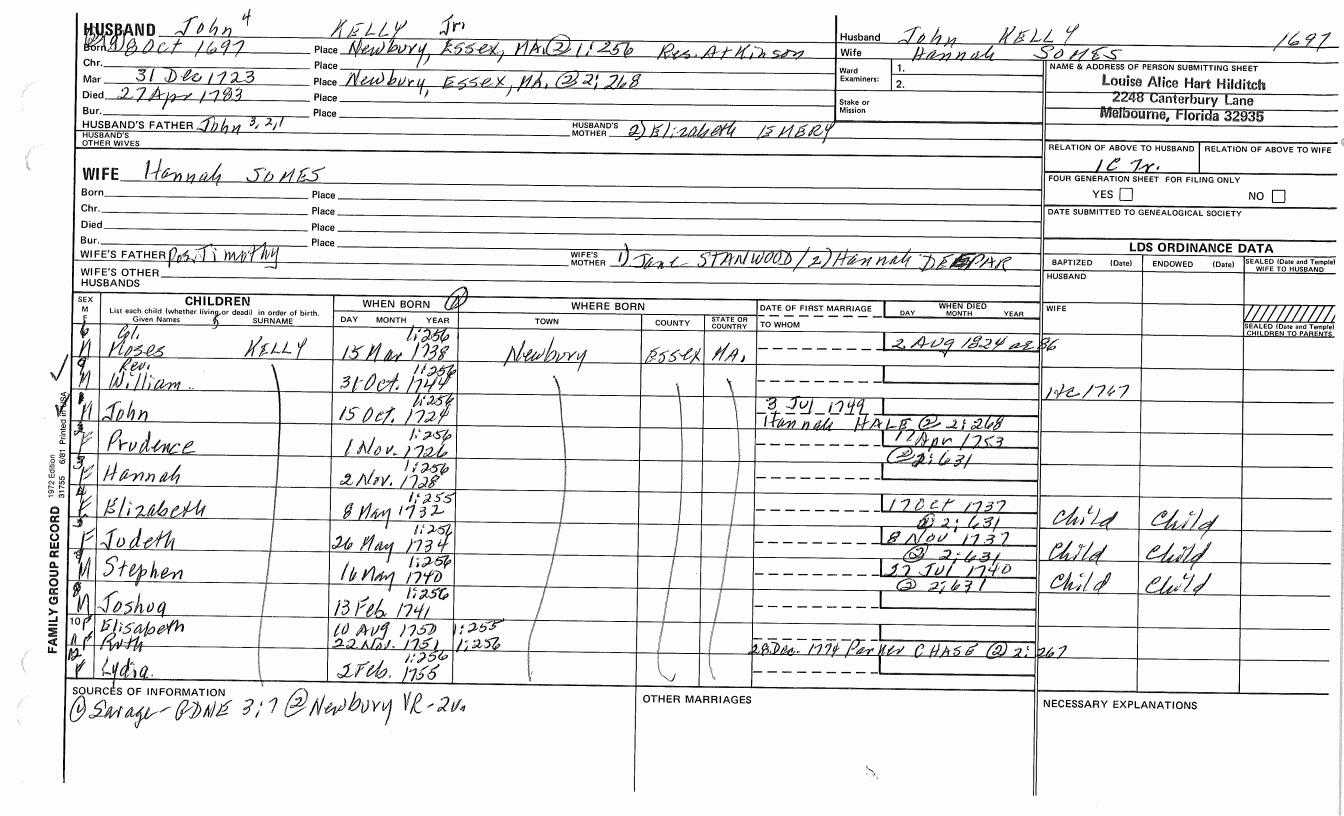 HUSBAND John 4 KELLY Jr.
Born 8 Oct 1697 Place Newbury, Essex, MA. (2) 1:256 Res. Atkinson
Chr. Place
Mar 31 Dec 1723 Place Newbury, Essex, MA. (2) 2:268
Died 27 Apr 1783 Place
Bur. Place
HUSBAND'S FATHER John 3,2,1 HUSBAND'S MOTHER 2) Elizabeth EMERY
HUSBAND'S OTHER WIVES
Husband John KELLY 1697
Wife Hannah SOMES
Ward Examiners: 1.
2.
Stake or Mission
NAME & ADDRESS OF PERSON SUBMITTING SHEET
Louise Alice Hart Hilditch
2248 Canterbury Lane
Melbourne, Florida 32935
RELATION OF ABOVE TO HUSBAND RELATION OF ABOVE TO WIFE
1C 7r.
FOUR GENERATION SHEET FOR FILING ONLY
YES NO
DATE SUBMITTED TO GENEALOGICAL SOCIETY
WIFE Hannah SOMES
Born Place
Chr. Place
Died Place
Bur. Place
WIFE'S FATHER Pos. Timothy WIFE'S MOTHER 1) Jane STANWOOD/2) Hannah
WIFE'S OTHER HUSBANDS
LDS ORDINANCE DATA
BAPTIZED (Date) ENDOWED (Date) SEALED (Date and Temple) WIFE TO HUSBAND
HUSBAND
WIFE
SEALED (Date and Temple) CHILDREN TO PARENTS
SEX M F CHILDREN
List each child (whether living or dead) in order of birth.
Given Names SURNAME
WHEN BORN
DAY MONTH YEAR
WHERE BORN
TOWN COUNTY STATE OR COUNTRY
DATE OF FIRST MARRIAGE
TO WHOM
WHEN DIED
DAY MONTH YEAR
6 Cl. 1:256
M Moses KELLY 15 Mar 1738 Newbury Essex MA. 2 Aug 1824 ae 86
9 Rev. 1:256
M William 31 Oct. 1744 H.C 1767
1 1:256 3 Jul 1749
M John 15 Oct. 1724 Hannah HALE (2) 2:268
2 1:256 17 Apr 1753
F Prudence 1 Nov. 1726 (2) 2:631
3 1:256
F Hannah 2 Nov. 1728
4 1:255 17 Oct 1737
F Elizabeth 8 May 1732 (2) 2:631 Child Child
5 1:256 8 Nov 1737
F Judeth 26 May 1734 (2) 2:631 Child Child
1:256 27 Jul 1740
M Stephen 16 May 1740 (2) 2:631 Child Child
8 1:256
M Joshua 13 Feb 1741
10 F Elisabeth 10 Aug 1750 1:255
11 F Ruth 22 Nov. 1751 1:256 28 Dec. 1774 CHASE (2) 2:267
12 1:256
F Lydia 2 Feb. 1755
SOURCES OF INFORMATION
(1) Savage-GDNE 3:7 (2) Newbury VR-2v.
OTHER MARRIAGES
NECESSARY EXPLANATIONS
FAMILY GROUP RECORD 1972 Edition 31755 6/81 Printed in USA